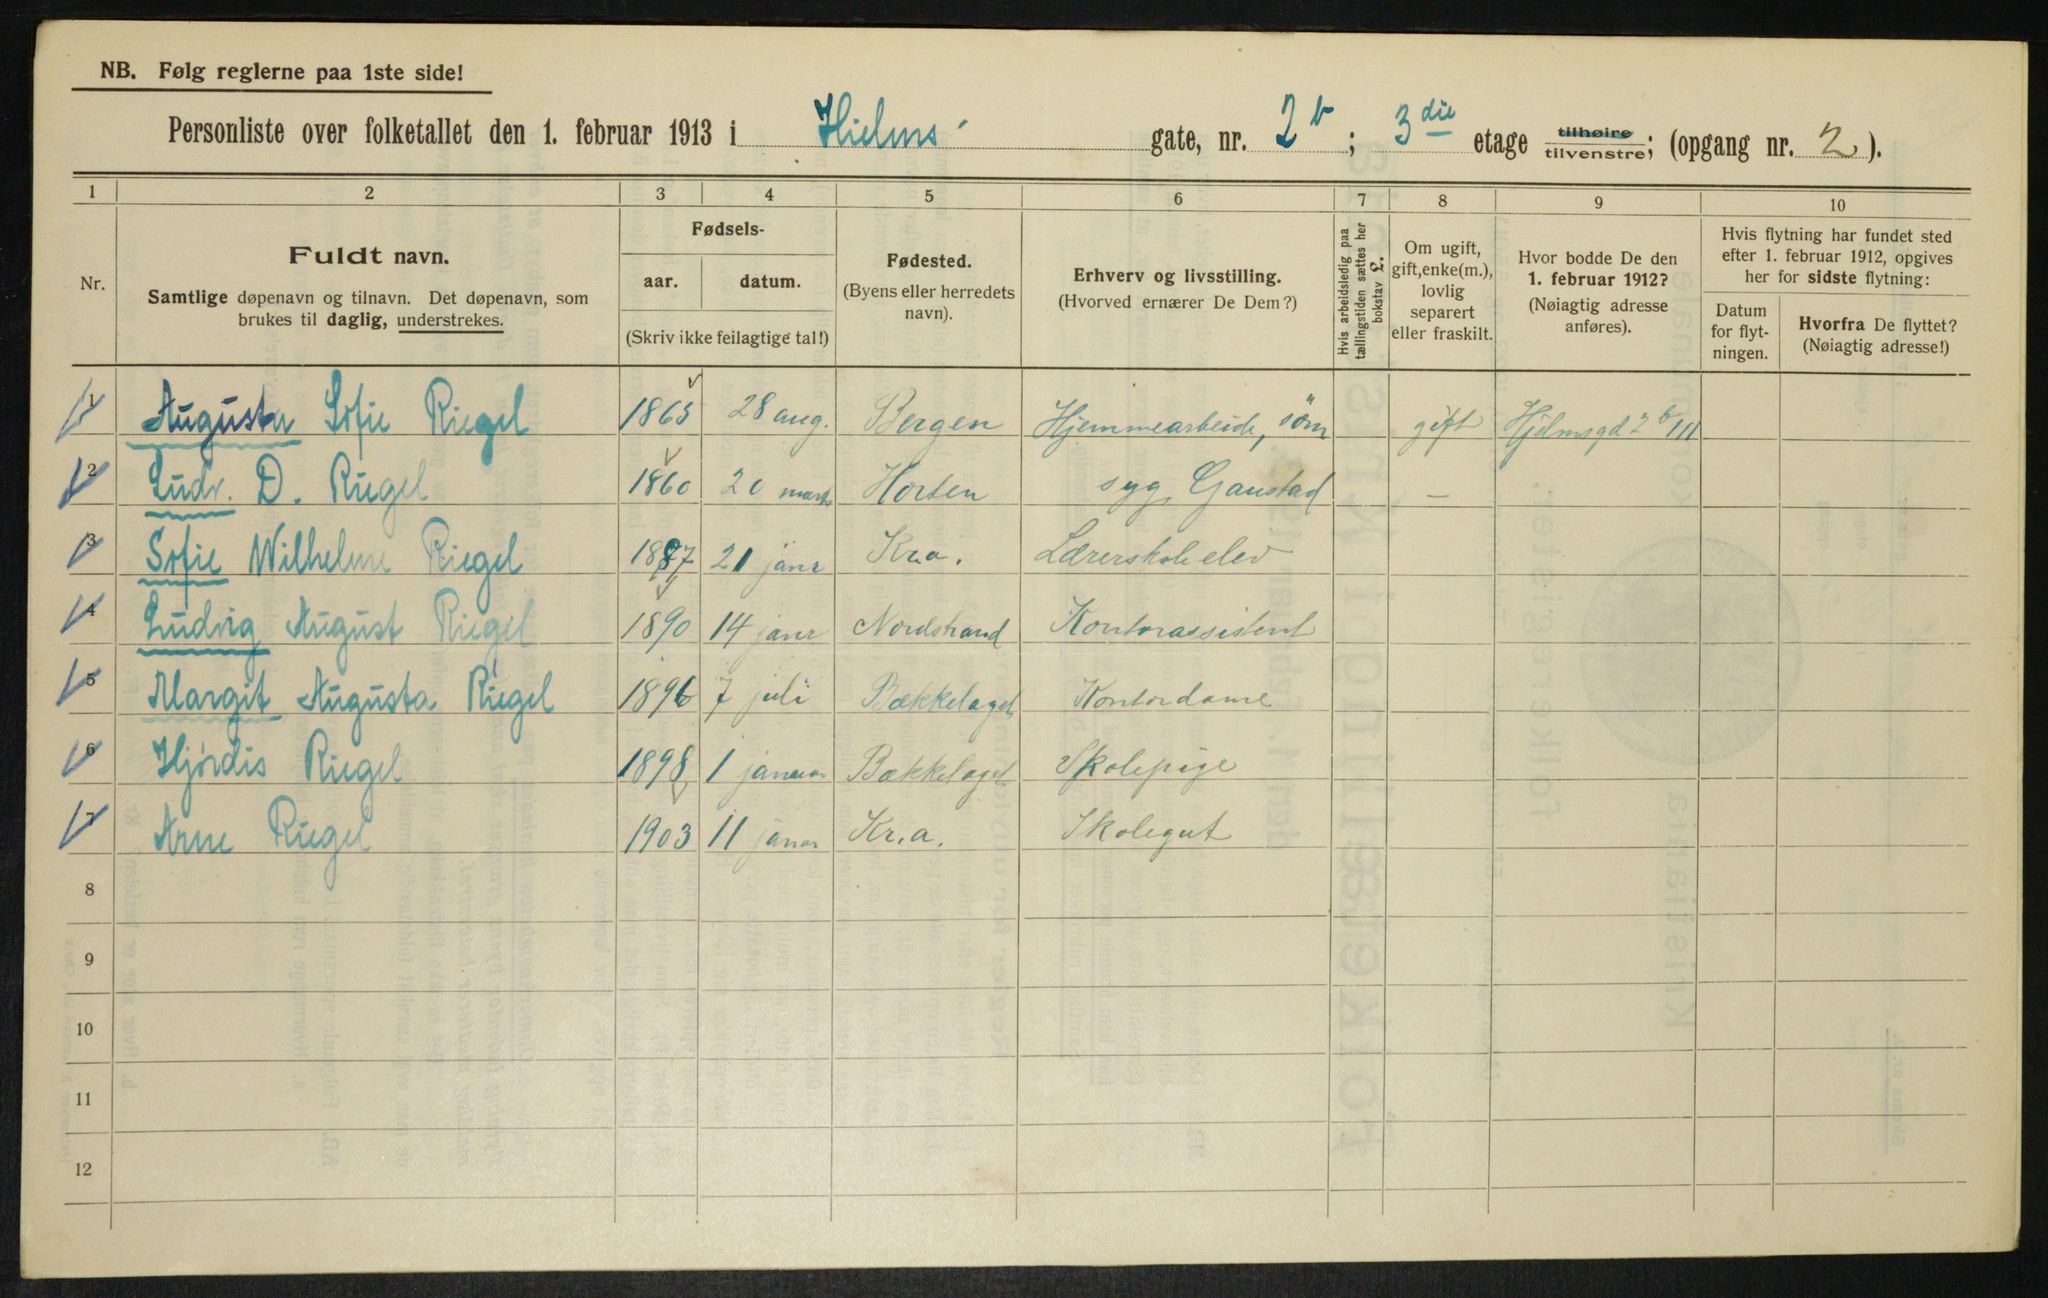 NB. Følg reglerne paa 1ste side!
Personliste over folketallet den 1. februar 1913 i Hielms gate, nr. 2 b; 3 die etage tilhøire tilvenstre; (opgang nr. 2).
1 2 3 4 5 6 7 8 9 10
Nr.
Fuldt navn.
Samtlige døpenavn og tilnavn. Det døpenavn, som
brukes til daglig, understrekes.
Fødsels-
aar. datum.
(Skriv ikke feilagtige tal!)
Fødested.
(Byens eller herredets
navn).
Erhverv og livsstilling.
(Hvorved ernærer De Dem?)
Hvis arbeidsledig paa
tællingstiden sættes her
bokstav L.
Om ugift,
gift, enke(m.),
lovlig
separert
eller fraskilt.
Hvor bodde De den
1. februar 1912?
(Nøiagtig adresse
anføres).
Hvis flytning har fundet sted
efter 1. februar 1912, opgives
her for sidste flytning:
Datum
for flyt-
ningen.
Hvorfra De flyttet?
(Nøiagtig adresse!)
1 Augusta Sofie Riegel 1865 28 aug. Bergen Hjemmearbeide, söm gift Hjelmsgd 2 b/III
2 Ludv. D. Riegel 1860 20 marts Horten syg, Gaustad —
3 Sofie Wilhelme Riegel 1887 21 janr Kra. Lærerskoleelev
4 Ludvig August Riegel 1890 14 janr Nordstrand Kontorassistent
5 Margit Augusta Riegel 1896 7 juli Bækkelaget Kontordame
6 Hjørdis Riegel 1898 1 januar Bækkelaget Skolepige
7 Arne Riegel 1903 11 januar Kr.a. Skolegut
8
9
10
11
12